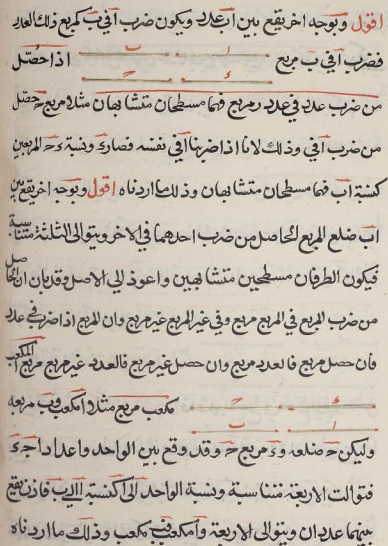 اقول وبوجه اخر يقع بين اب عدد ويكون ضرب ا في ب كمربع ذلك العدد
فضرب ا في ب مربع ا ب اذا حصل
ء ح
من ضرب عدد في عدد مربع فهما مسطحان متشابهان مثلا مربع ح حصل
من ضرب ا في ب وذلك لانا اذا ضربنا ا في نفسه فصار ء ونسبة ء ح المربعين
كنسبة اب فهما مسطحان متشابهان وذلك ما اردناه اقول وبوجه اخر يقع بين
اب ضلع المربع الحاصل من ضرب احدهما في الاخر ويتوالى الثلثة متناسبة
فيكون الطرفان مسطحين متشابهين واعود الى الاصل وقد بان ان الحاصل
من ضرب المربع في المربع مربع وفي غير المربع غير مربع وان المربع اذا ضرب في عدد
فان حصل مربع فالعدد مربع وان حصل غير مربع فالعدد غير مربع مربع المكعب
ء ح مكعب مربع مثلا ا مكعب وب مربعه
ا ب
وليكن ح ضلعه و ء مربع ح وقد وقع بين الواحد و ا عددا ح ء
فتوالت الاربعة متناسبة ونسبة الواحد الى ا كنسبة ا الى ب فاذن يقع
بينهما عددان ويتوالى الاربعة و ا مكعب فب مكعب وذلك ما اردناه